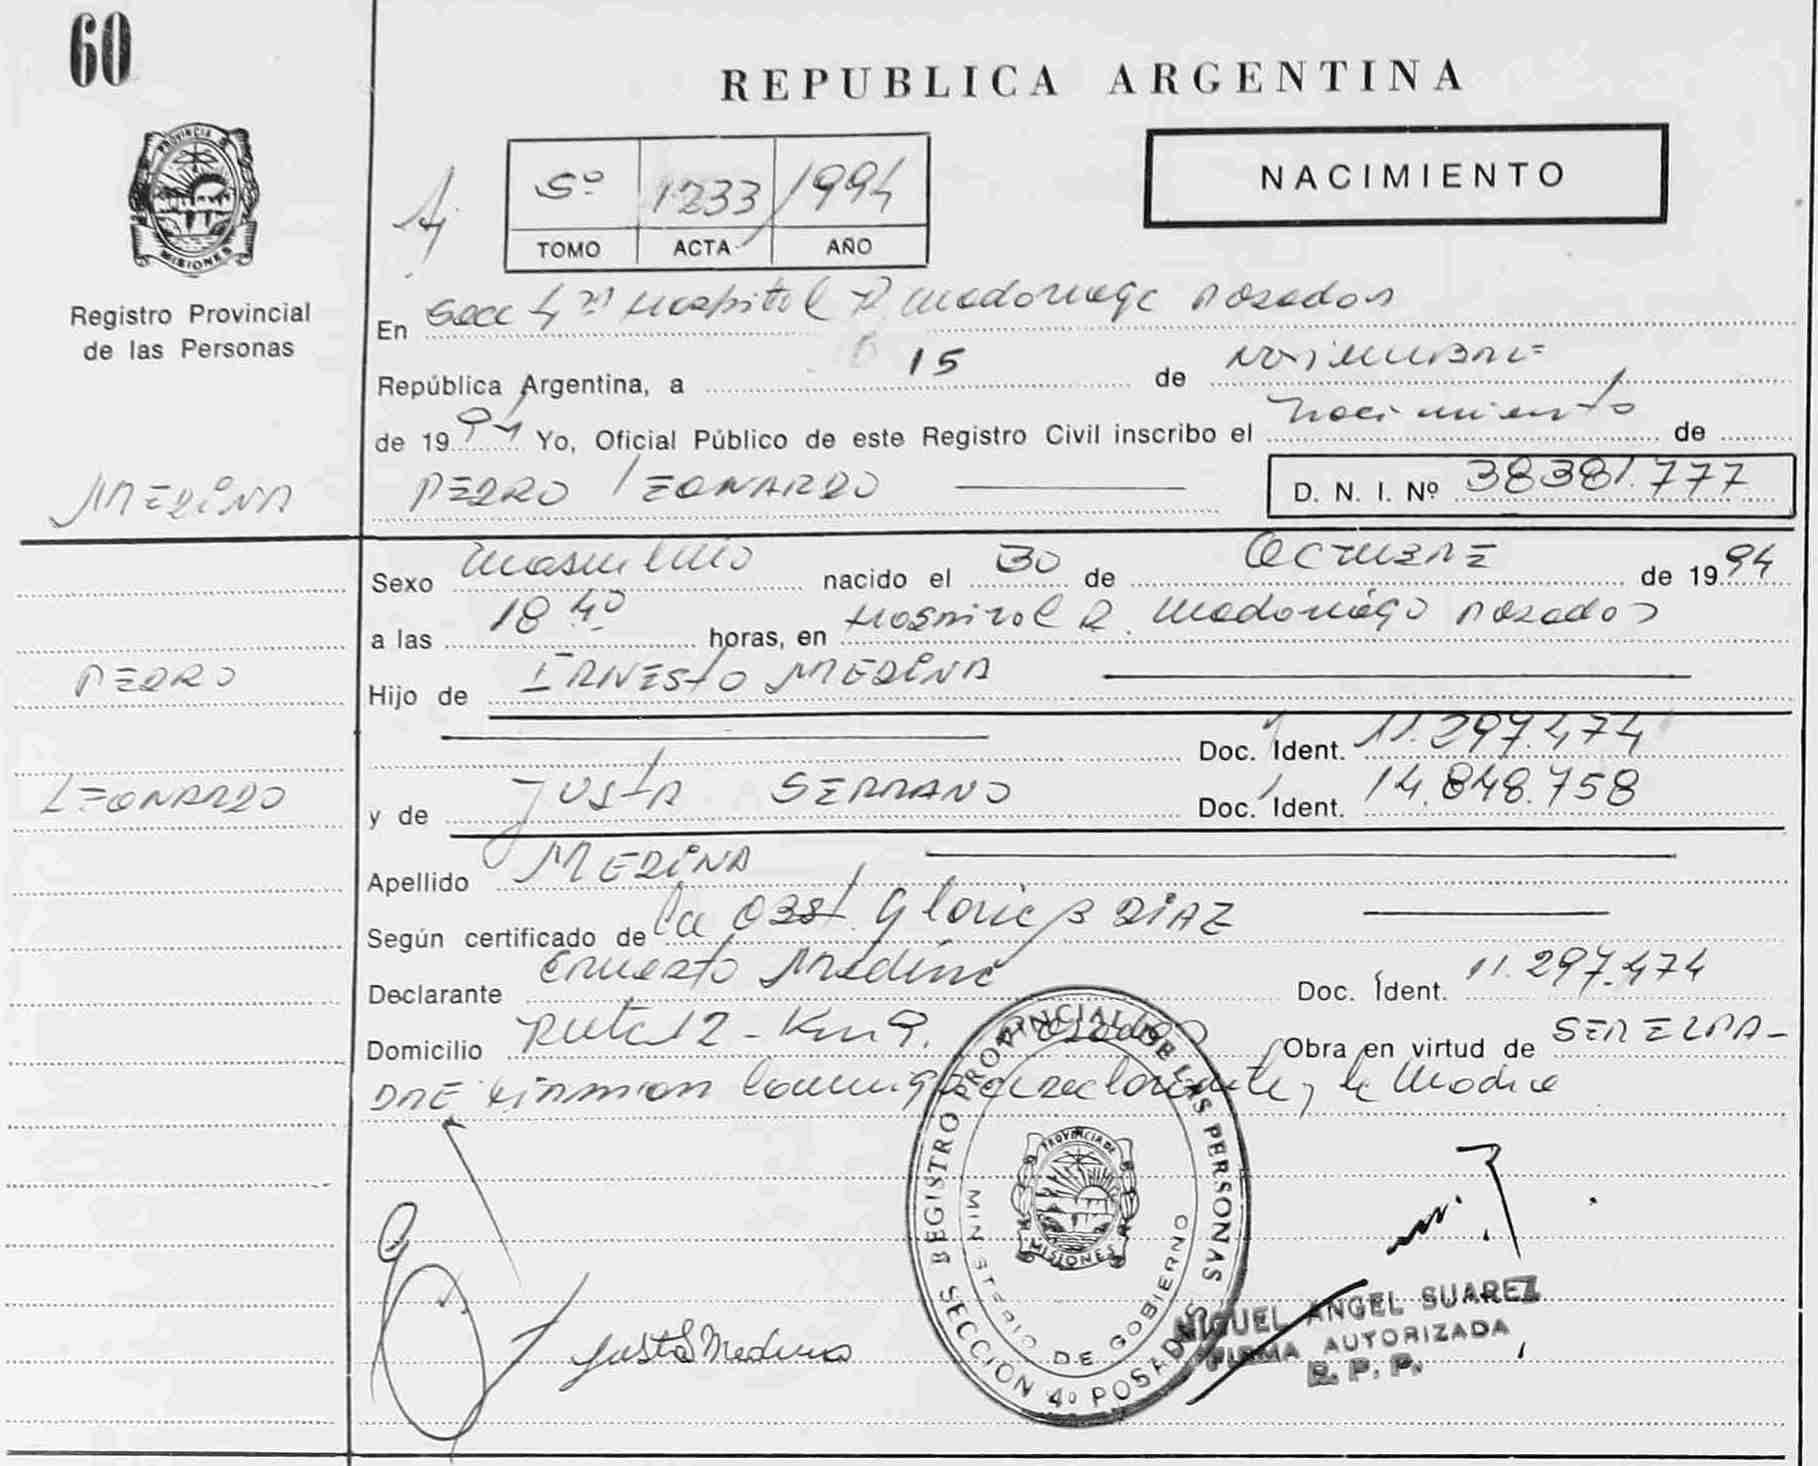 60
REPUBLICA ARGENTINA
PROVINCIA DE
MISIONES
Registro Provincial
de las Personas
NACIMIENTO
5º 1233 1994
TOMO ACTA AÑO
En Secc 4ª Hospital R. Madariaga Posadas
República Argentina, a 15 de Noviembre
de 1994 Yo, Oficial Público de este Registro Civil inscribo el nacimiento de
MEDINA PEDRO LEONARDO D. N. I. Nº 38381.777
Sexo masculino nacido el 30 de OCTUBRE de 1994
a las 18 40 horas, en Hospital R. Madariaga Posadas
PEDRO
Hijo de ERNESTO MEDINA
Doc. Ident. 11.297.474
LEONARDO
y de JUSTA SERRANO Doc. Ident. 14.848.758
Apellido MEDINA
Según certificado de la OBST. Gloria B DIAZ
Declarante Ernesto Medina Doc. Ident. 11.297.474
Domicilio Ruta 12 - Km 9. Posadas Obra en virtud de SER EL PA-
DRE firman conmigo declarante, la Madre
REGISTRO PROVINCIAL DE LAS PERSONAS
MINISTERIO DE GOBIERNO
PROVINCIA DE
MISIONES
SECCION 4º POSADAS
Justa S Medina
MIGUEL ANGEL SUAREZ
FIRMA AUTORIZADA
R. P. P.